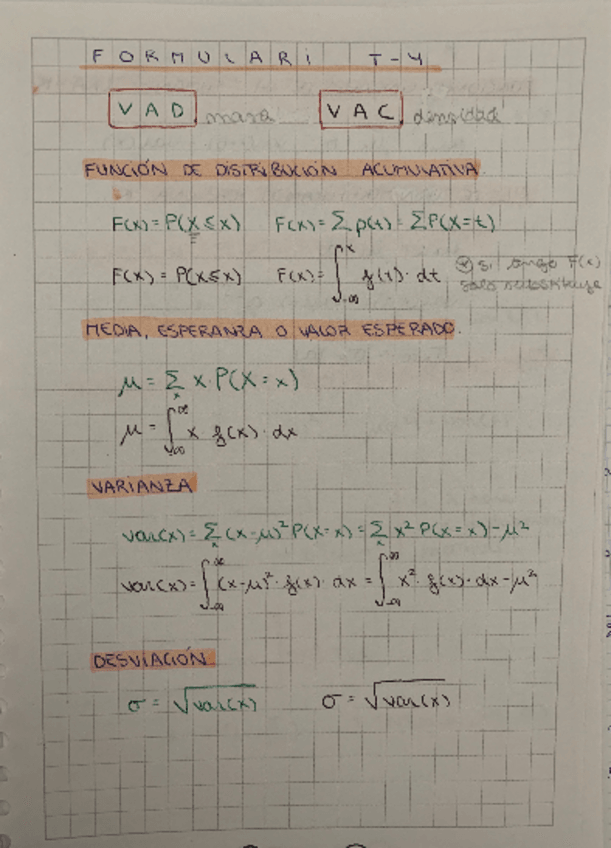 FORMULARI T-4
VAD masa VAC densidad
FUNCIÓN DE DISTRIBUCIÓN ACUMULATIVA
F(x) = P(X ≤ x) F(x) = Σ p(t) = Σ P(X = t)
F(x) = P(X ≤ x) F(x) = ∫_{-∞}^{x} f(t) · dt
* si tengo F(x)
solo
MEDIA, ESPERANZA O VALOR ESPERADO.
μ = Σ_x x · P(X = x)
μ = ∫_{-∞}^{∞} x · f(x) · dx
VARIANZA
var(x) = Σ_x (x-μ)² P(X=x) = Σ_x x² P(X=x) - μ²
var(x) = ∫_{-∞}^{∞} (x-μ)² · f(x) · dx = ∫_{-∞}^{∞} x² · f(x) · dx - μ²
DESVIACIÓN
σ = √var(x) σ = √var(x)